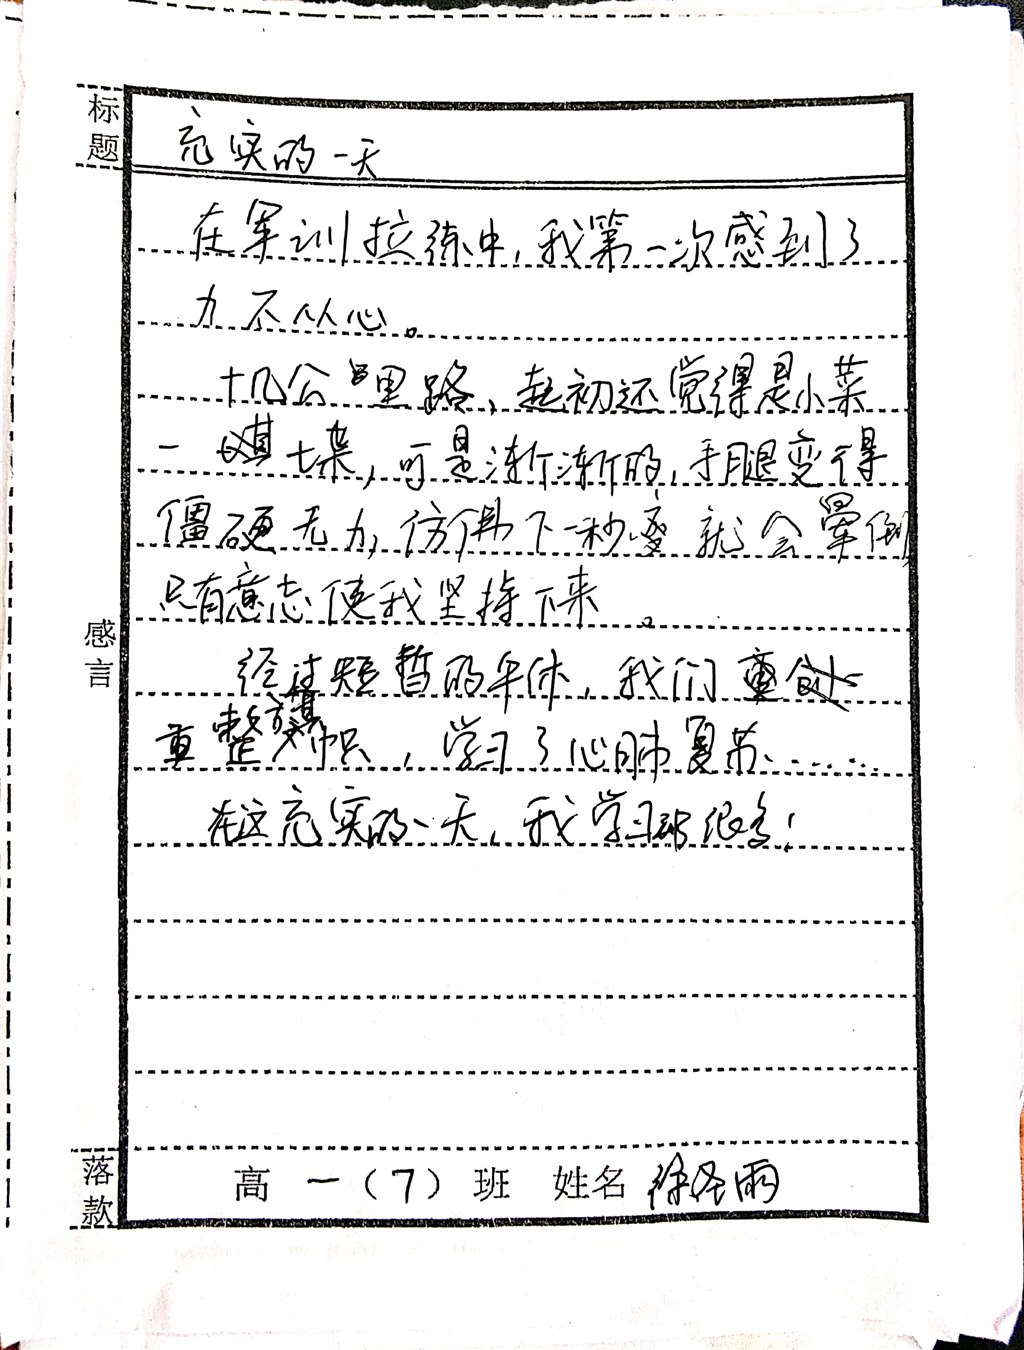 标题
充实的一天
在军训拉练中,我第一次感到了
力不从心。
十几公里路,起初还觉得是小菜
一碟,可是渐渐的,手腿变得
僵硬无力,仿佛下一秒就会晕倒
只有意志使我坚持下来。
感言
经过短暂的午休,我们
重整旗帜,学习了心肺复苏……
在这充实的一天,我学习到很多!
落款
高一(7)班 姓名 徐圣雨